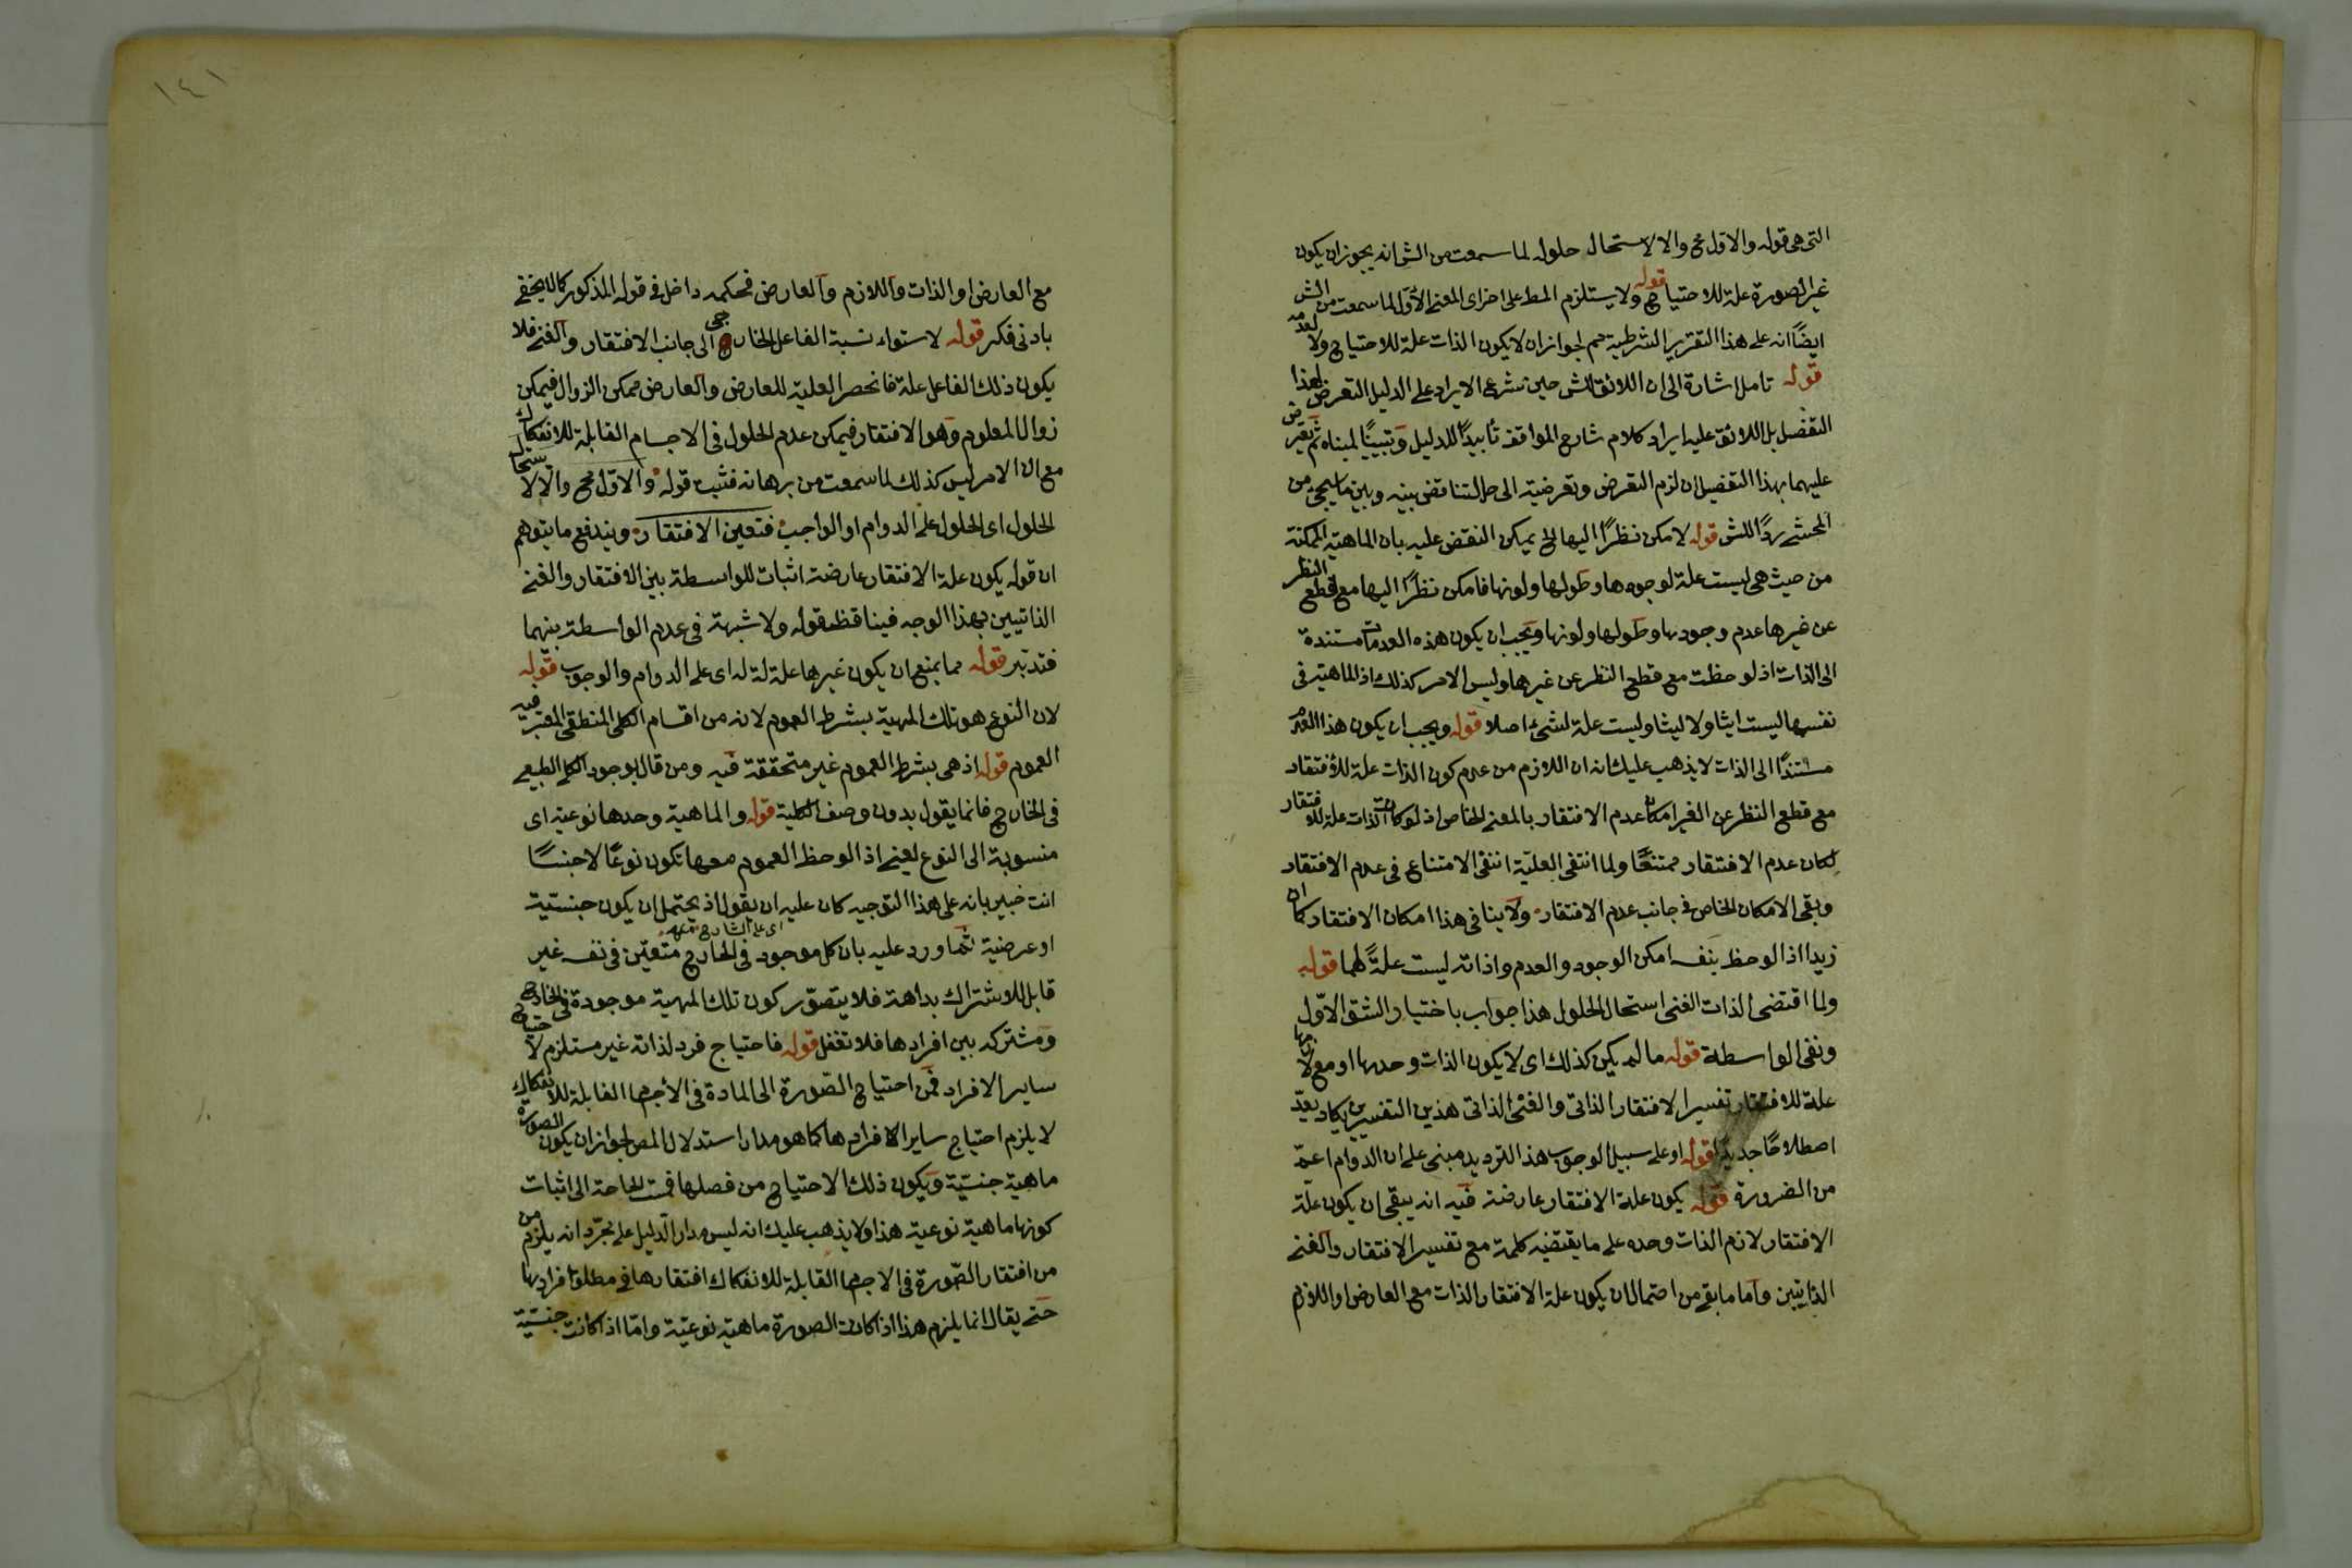 التى هى قوله والاول مح والا لاستحال حلوله لما سمعت من الش انه يجوز ان يكون
غير الصورة علة للاحتياج قوله ولا يستلزم المط على اخرى المعنى الاول لما سمعت من الش
ايضًا انه على هذا التقرير الشرطية مم لجواز ان لا يكون الذات علة للاحتياج ولا لعدمه
قوله تامل اشارة الى ان اللائق للش حين شرع الايراد على الدليل التعرض لهذا
التفصيل بل اللائق عليه ايراد كلام شارح المواقف تأييدًا للدليل وتبيينًا لمبناه ثم تعرض
عليهما بهذا التفصيل ان لزم التعرض وتعرضية الى حل التناقض بينه وبين ما سيجئ من
المحشى ردًا للش قوله لامكن نظرًا اليها الخ يمكن النقض عليه بان الماهية الممكنة
من حيث هى ليست علة لوجودها وطولها ولونها فامكن نظرًا اليها مع قطع النظر
عن غيرها عدم وجودها وطولها ولونها ويجب ان يكون هذه العدمات مستندة
الى الذات اذ لوحظت مع قطع النظر عن غيرها وليس الامر كذلك اذ الماهية فى
نفسها ليست ايثا ولا ليثا وليست علة لشئ اصلا قوله ويجب ان يكون هذا العدم
مستندًا الى الذات لا يذهب عليك انه ان اللازم من عدم كون الذات علة للافتقار
مع قطع النظر عن الغير امكان عدم الافتقار بالمعنى الخاص اذ لو كانت الذات علة للافتقار
لكان عدم الافتقار ممتنعًا ولما انتفى العلية انتفى الامتناع فى عدم الافتقار
وبقى الامكان الخاص فى جانب عدم الافتقار ولا ينافى هذا امكان الافتقار كما ان
زيدا اذا لوحظ بنفسه امكن الوجود والعدم واذاته ليست علةً لهما قوله
ولما اقتضى الذات الغنى استحال الحلول هذا جواب باختيار الشق الاول
ونفى الواسطة قوله ما لم يكن كذلك اى لا يكون الذات وحدها او مع لازمها
علة للافتقار تفسير الافتقار الذاتى والغنى الذاتى هذين التفسيرين يكاد يعدّ
اصطلاحًا جديدًا قوله او على سبيل الوجوب هذا الترديد مبنى على ان الدوام اعم
من الضرورة قوله يكون علة الافتقار عارضة فيه انه يبقى ان يكون علة
الافتقار لازم الذات وحده على ما يقتضيه كلمة مع تفسير الافتقار والغنى
الذاتيين واما ما بقى من احتمال ان يكون علة الافتقار الذات مع العارض او اللازم
١٤١
مع العارض او الذات واللازم والعارض فحكمه داخل فى قوله المذكور كما لا يخفى
بادنى فكر قوله لاستواء نسبة الفاعل الخارجى الى جانب الافتقار والغنى فلا
يكون ذلك الفاعل علة فانحصر العلية للعارض والعارض ممكن الزوال فيمكن
زوال المعلوم وهو الافتقار فيمكن عدم الحلول فى الاجسام القابلة للانفكاك
مع ان الامر ليس كذلك لما سمعت من برهانه فثبت قوله والاول مح والا لاستحال
الحلول اى الحلول على الدوام او الواجب فتعين الافتقار ويندفع ما يتوهم
ان قوله يكون علة الافتقار عارضة اثبات للواسطة بين الافتقار والغنى
الذاتيين بهذا الوجه فيناقظ قوله ولا شبهة فى عدم الواسطة بينهما
فتدبر قوله مما يمنع ان يكون غيرها علة له اى على الدوام والوجوب قوله
لان النوع هو تلك المهية بشرط العموم لانه من اقسام الكلى المنطقى المعتبر فيه
العموم قوله اذ هى بشرط العموم غير متحققة فيه ومن قال بوجود الكلى الطبيعى
فى الخارج فانما يقول بدون وصف الكلية قوله والماهية وحدها نوعية اى
منسوبة الى النوع يعنى اذا لوحظ العموم معها تكون نوعًا لا جنسًا
انت خبير بانه على هذا التوجيه كان عليه ان يقول اذ يحتمل ان يكون جنسية
او عرضية ثم اورد عليه بان كل موجود فى الخارج متعين فى نفسه غير
اى على الشارح منه
قابل للاشتراك بداهة فلا يتصور كون تلك المهية موجودة فى الخارج
ومشتركه بين افرادها فلا تغفل قوله فاحتياج فرد لذاته غير مستلزم لاحتياج
ساير الافراد فمن احتياج الصورة الى المادة فى الأجسام القابلة للانفكاك
لا يلزم احتياج ساير الافراد ها كما هو مدار استدلال المص لجواز ان يكون الصورة
ماهية جنسية ويكون ذلك الاحتياج من فصلها فمست الحاجة الى اثبات
كونها ماهية نوعية هذا ولا يذهب عليك انه ليس مدار الدليل على مجرد انه يلزم من
من افتقار الصورة فى الاجسام القابلة للانفكاك افتقارها فى مطلق افرادها
حتى يقال انما يلزم هذا اذا كانت الصورة ماهية نوعية واما اذا كانت جنسية